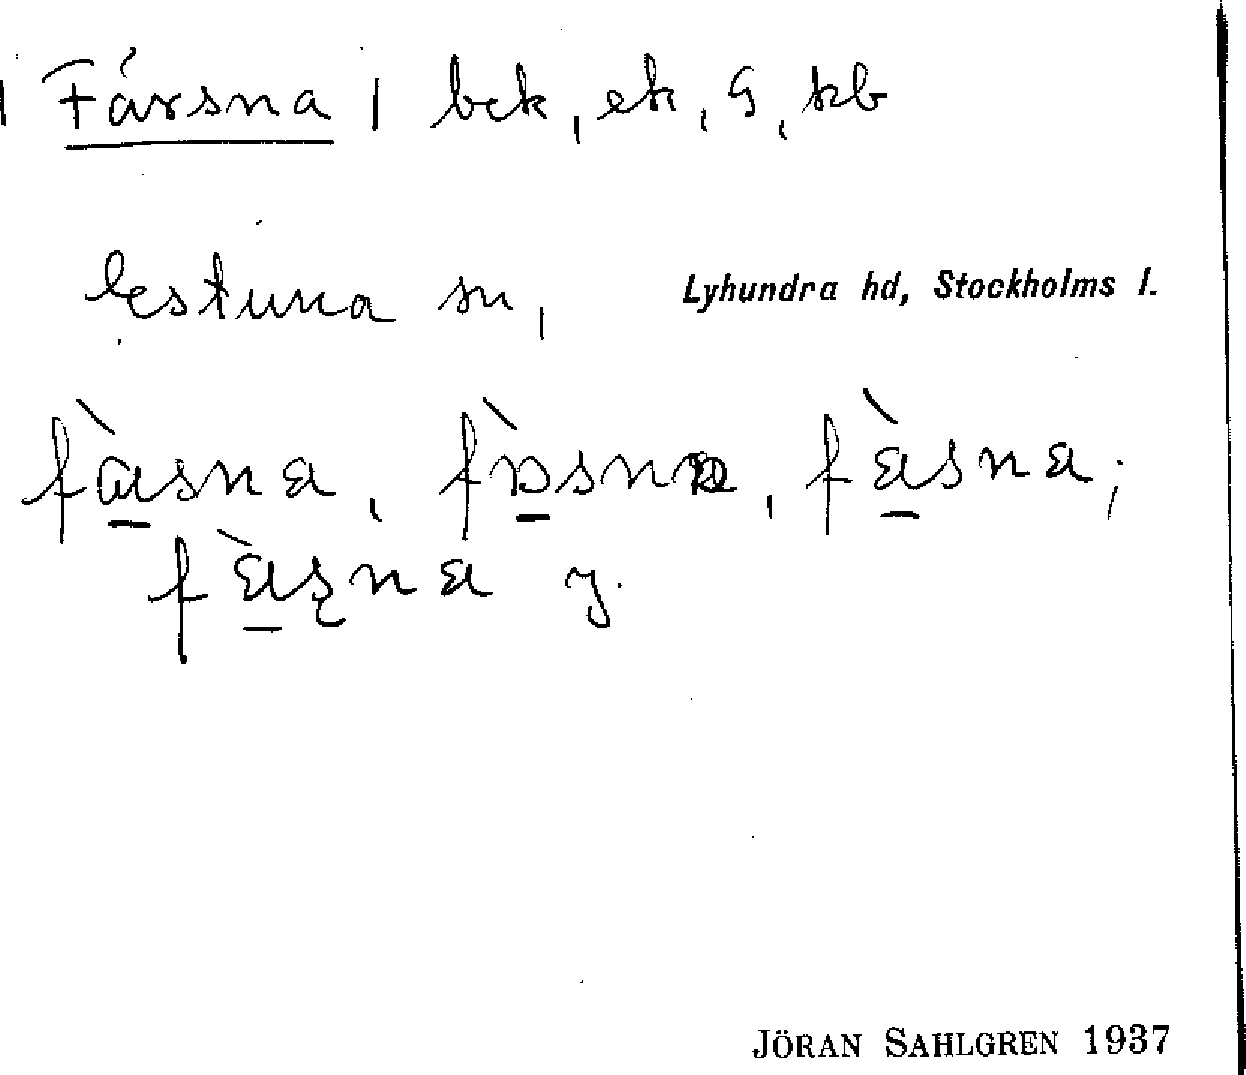 | Fårsna | bck, ek, G, kb
Estuna sn, Lyhundra hd, Stockholms l.
fàsna, fɒ̀snɒ, fàsna;
fàʂna y.
JÖRAN SAHLGREN 1937